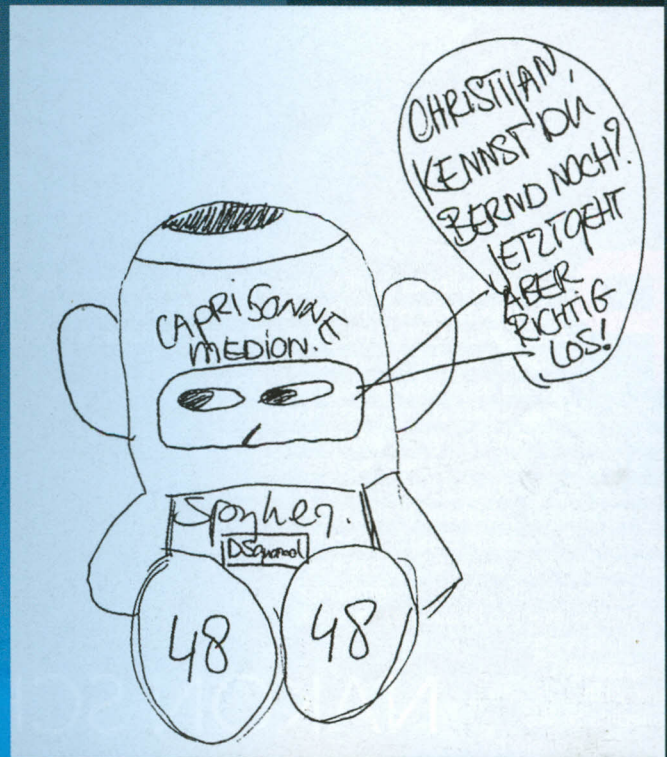 CHRISTIJAN,
KENNST DU
BERND NOCH?
JETZT GEHT
ABER
RICHTIG
LOS!
CAPRISONNE
MEDION.
Spyker.
DSquared
48 48